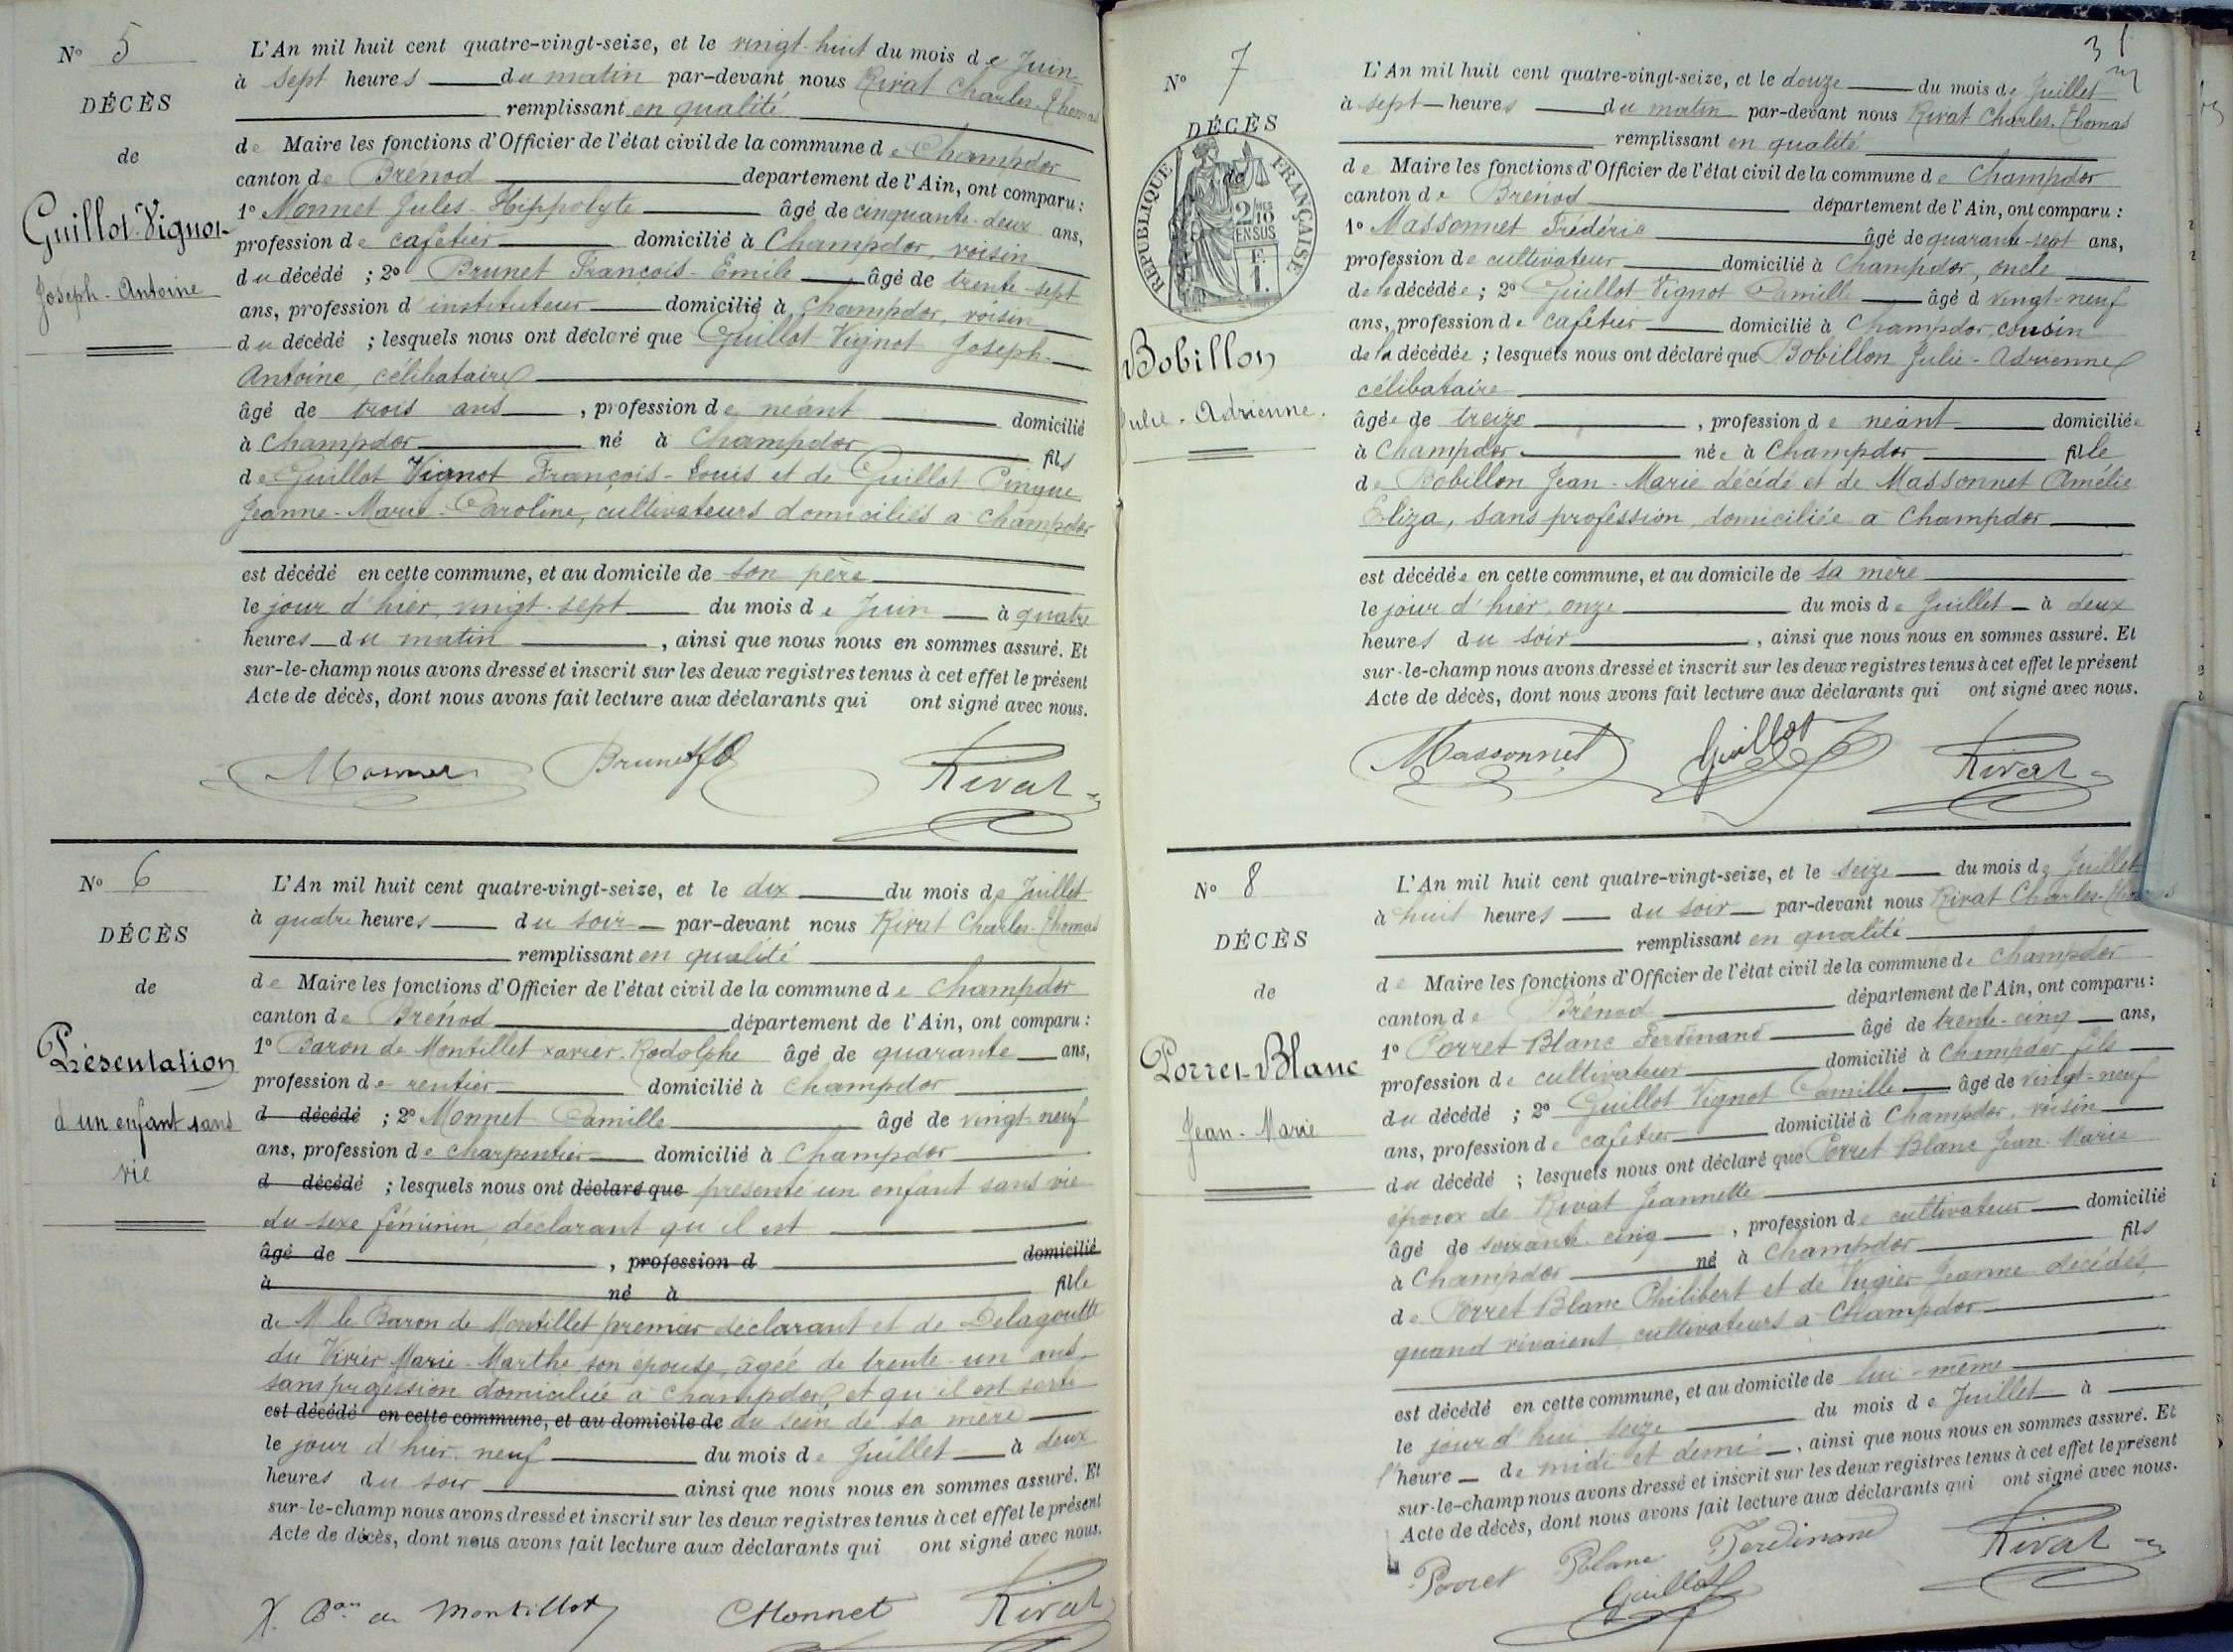 N° 5
DÉCÈS
de
Guillot-Vignot
Joseph-Antoine
L'An mil huit cent quatre-vingt-seize, et le vingt-huit du mois de Juin
à sept heures du matin par-devant nous Rivat Charles-Thomas
remplissant en qualité
de Maire les fonctions d'Officier de l'état civil de la commune de Champdor
canton de Brénod département de l'Ain, ont comparu :
1° Monnet Jules-Hippolyte âgé de cinquante-deux ans,
profession de cafetier domicilié à Champdor, voisin
du décédé ; 2° Brunet François-Emile âgé de trente-sept
ans, profession d'instituteur domicilié à Champdor, voisin
du décédé ; lesquels nous ont déclaré que Guillot Vignot Joseph-
Antoine, célibataire
âgé de trois ans , profession de néant domicilié
à Champdor né à Champdor fils
de Guillot Vignot François-Louis et de Guillot Pingue
Jeanne-Marie-Caroline, cultivateurs domiciliés à Champdor
est décédé en cette commune, et au domicile de son père
le jour d'hier, vingt-sept du mois de Juin à quatre
heures du matin , ainsi que nous nous en sommes assuré. Et
sur-le-champ nous avons dressé et inscrit sur les deux registres tenus à cet effet le présent
Acte de décès, dont nous avons fait lecture aux déclarants qui ont signé avec nous.
Monnet Brunet Rivat
N° 6
DÉCÈS
de
Présentation
d'un enfant sans
vie
L'An mil huit cent quatre-vingt-seize, et le dix du mois de Juillet
à quatre heures du soir par-devant nous Rivat Charles-Thomas
remplissant en qualité
de Maire les fonctions d'Officier de l'état civil de la commune de Champdor
canton de Brénod département de l'Ain, ont comparu :
1° Baron de Montillet Xavier-Rodolphe âgé de quarante ans,
profession de rentier domicilié à Champdor
d décédé ; 2° Monnet Camille âgé de vingt-neuf
ans, profession de charpentier domicilié à Champdor
d décédé ; lesquels nous ont déclaré que présenté un enfant sans vie
du sexe féminin, déclarant qu'il est
âgé de , profession d domicilié
à né à fille
de M le Baron de Montillet premier déclarant et de Delagoutte
du Vivier Marie-Marthe son épouse, âgée de trente-un ans,
sans profession domiciliée à Champdor, et qu'il est sorti
est décédé en cette commune, et au domicile de du sein de sa mère
le jour d'hier neuf du mois de Juillet à deux
heures du soir ainsi que nous nous en sommes assuré. Et
sur-le-champ nous avons dressé et inscrit sur les deux registres tenus à cet effet le présent
Acte de décès, dont nous avons fait lecture aux déclarants qui ont signé avec nous.
X. Bon de Montillet CMonnet Rivat
31
N° 7
DÉCÈS
de
RÉPUBLIQUE FRANÇAISE
2/10 EN SUS
F. 1.
Bobillon
Julie-Adrienne.
L'An mil huit cent quatre-vingt-seize, et le douze du mois de Juillet
à sept heures du matin par-devant nous Rivat Charles-Thomas
remplissant en qualité
de Maire les fonctions d'Officier de l'état civil de la commune de Champdor
canton de Brénod département de l'Ain, ont comparu :
1° Massonnet Frédéric âgé de quarante-sept ans,
profession de cultivateur domicilié à Champdor, oncle
de la décédée ; 2° Guillot Vignot Camille âgé d vingt-neuf
ans, profession de cafetier domicilié à Champdor, cousin
de la décédée ; lesquels nous ont déclaré que Bobillon Julie-Adrienne
célibataire
âgée de treize , profession de néant domiciliée
à Champdor née à Champdor fille
de Bobillon Jean-Marie décédé et de Massonnet Amélie
Eliza, sans profession, domiciliée à Champdor
est décédée en cette commune, et au domicile de sa mère
le jour d'hier, onze du mois de Juillet à deux
heures du soir , ainsi que nous nous en sommes assuré. Et
sur-le-champ nous avons dressé et inscrit sur les deux registres tenus à cet effet le présent
Acte de décès, dont nous avons fait lecture aux déclarants qui ont signé avec nous.
Massonnet Guillot Rivat
N° 8
DÉCÈS
de
Porret-Blanc
Jean-Marie
L'An mil huit cent quatre-vingt-seize, et le seize du mois de Juillet
à huit heures du soir par-devant nous Rivat Charles-Thomas
remplissant en qualité
de Maire les fonctions d'Officier de l'état civil de la commune de Champdor
canton de Brénod département de l'Ain, ont comparu :
1° Porret Blanc Ferdinand âgé de trente-cinq ans,
profession de cultivateur domicilié à Champdor fils
du décédé ; 2° Guillot Vignot Camille âgé de vingt-neuf
ans, profession de cafetier domicilié à Champdor, voisin
du décédé ; lesquels nous ont déclaré que Porret Blanc Jean-Marie
époux de Rivat Jeannette
âgé de soixante-cinq , profession de cultivateur domicilié
à Champdor né à Champdor fils
de Porret Blanc Philibert et de Jeanne décédés,
quand vivaient cultivateurs à Champdor
est décédé en cette commune, et au domicile de lui-même
le jour d'hui seize du mois de Juillet à
l'heure de midi et demi , ainsi que nous nous en sommes assuré. Et
sur-le-champ nous avons dressé et inscrit sur les deux registres tenus à cet effet le présent
Acte de décès, dont nous avons fait lecture aux déclarants qui ont signé avec nous.
Porret Blanc Ferdinand Rivat
Guillot